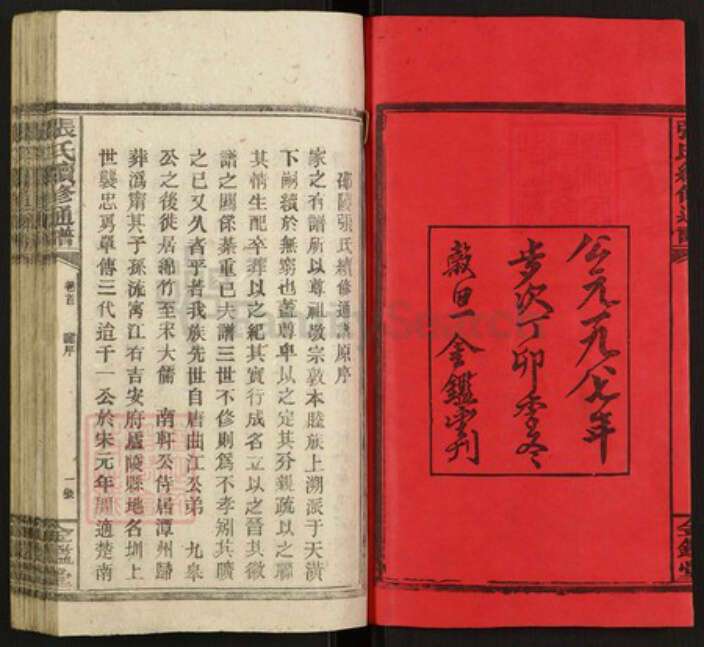 公元一九八七年
歲次丁卯季冬
穀旦 金鑑堂刊
金鑑堂
邵陵張氏續修通譜原序
家之有譜所以尊祖敬宗敦本睦族上溯派于天潢
下嗣續於無窮也蓋尊卑以之定其分親疏以之聯
其情生配卒葬以之紀其實行成名立以之晉其徽
譜之關係綦重已夫譜三世不修則為不孝矧其曠
之已又久者乎若我族先世自唐曲江公弟 九皋
公之後徙居綿竹至宋大儒 南軒公侍居潭州歸
葬溈甯其子孫流寓江右吉安府廬陵縣地名圳上
世襲忠勇單傳三代迨于一公於宋元年間適楚南
張氏續修通譜
卷首
一
金鑑堂